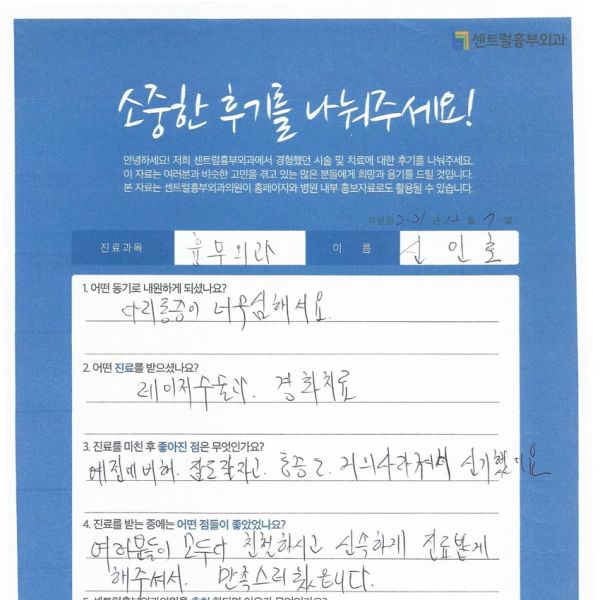 센트럴흉부외과
소중한 후기를 나눠주세요!
안녕하세요! 저희 센트럴흉부외과에서 경험했던 시술 및 치료에 대한 후기를 나눠주세요.
이 자료는 여러분과 비슷한 고민을 겪고 있는 많은 분들에게 희망과 용기를 드릴 것입니다.
본 자료는 센트럴흉부외과의원이 홈페이지와 병원 내부 홍보자료로도 활용될 수 있습니다.
작성일 2021 년 12 월 7 일
진료과목 흉부외과 이 름 신인호
1. 어떤 동기로 내원하게 되셨나요?
다리통증이 너무심해서요.
2. 어떤 진료를 받으셨나요?
레이저수술과. 경화치료
3. 진료를 마친 후 좋아진 점은 무엇인가요?
예전에비해. 잠도잘자고. 통증도. 거의사라져서 신기했어요
4. 진료를 받는 중에는 어떤 점들이 좋았었나요?
여러분들이 모두다 친절하시고 신속하게 진료받게
해주셔서. 만족스러웠습니다.